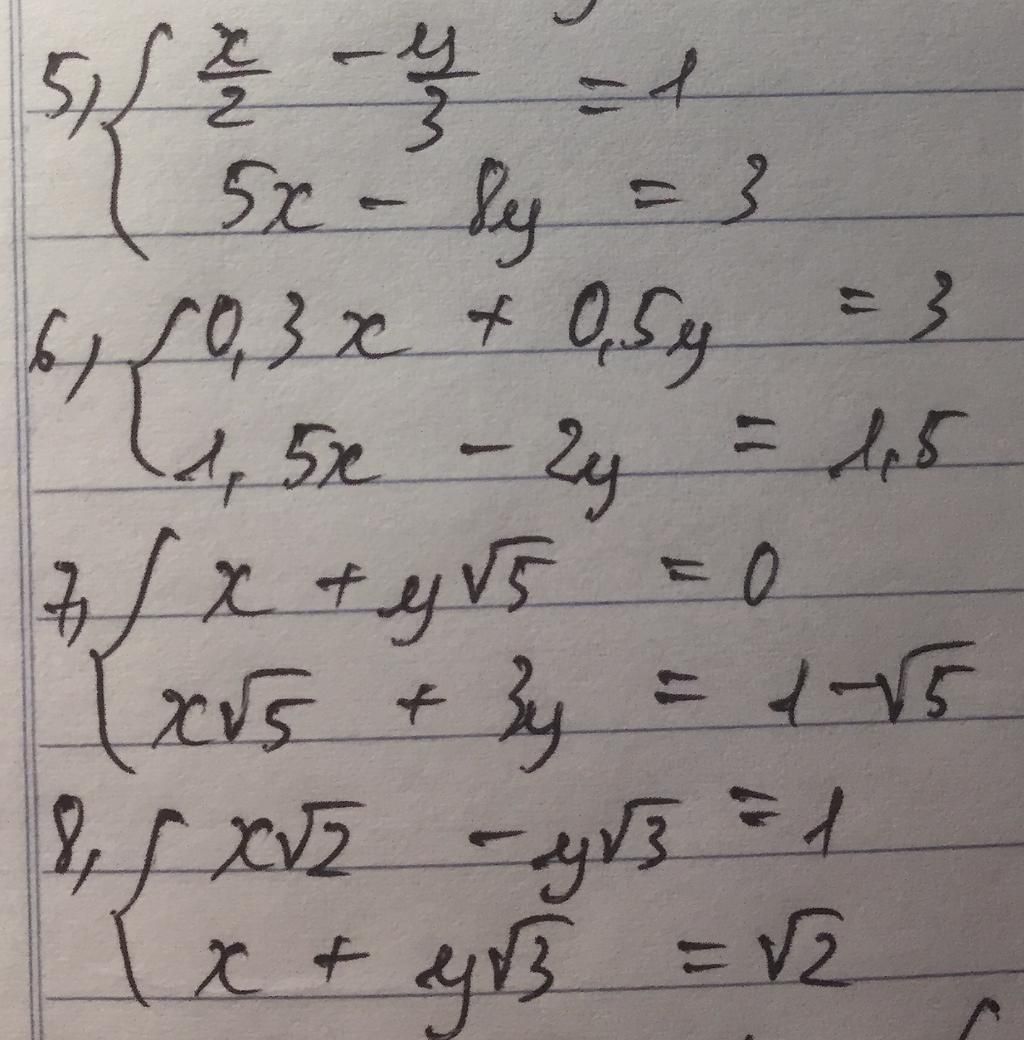 5, { x/2 - y/3 = 1
5x - 8y = 3
6, { 0,3x + 0,5y = 3
1,5x - 2y = 1,5
7, { x + y√5 = 0
x√5 + 3y = 1-√5
8, { x√2 - y√3 = 1
x + y√3 = √2